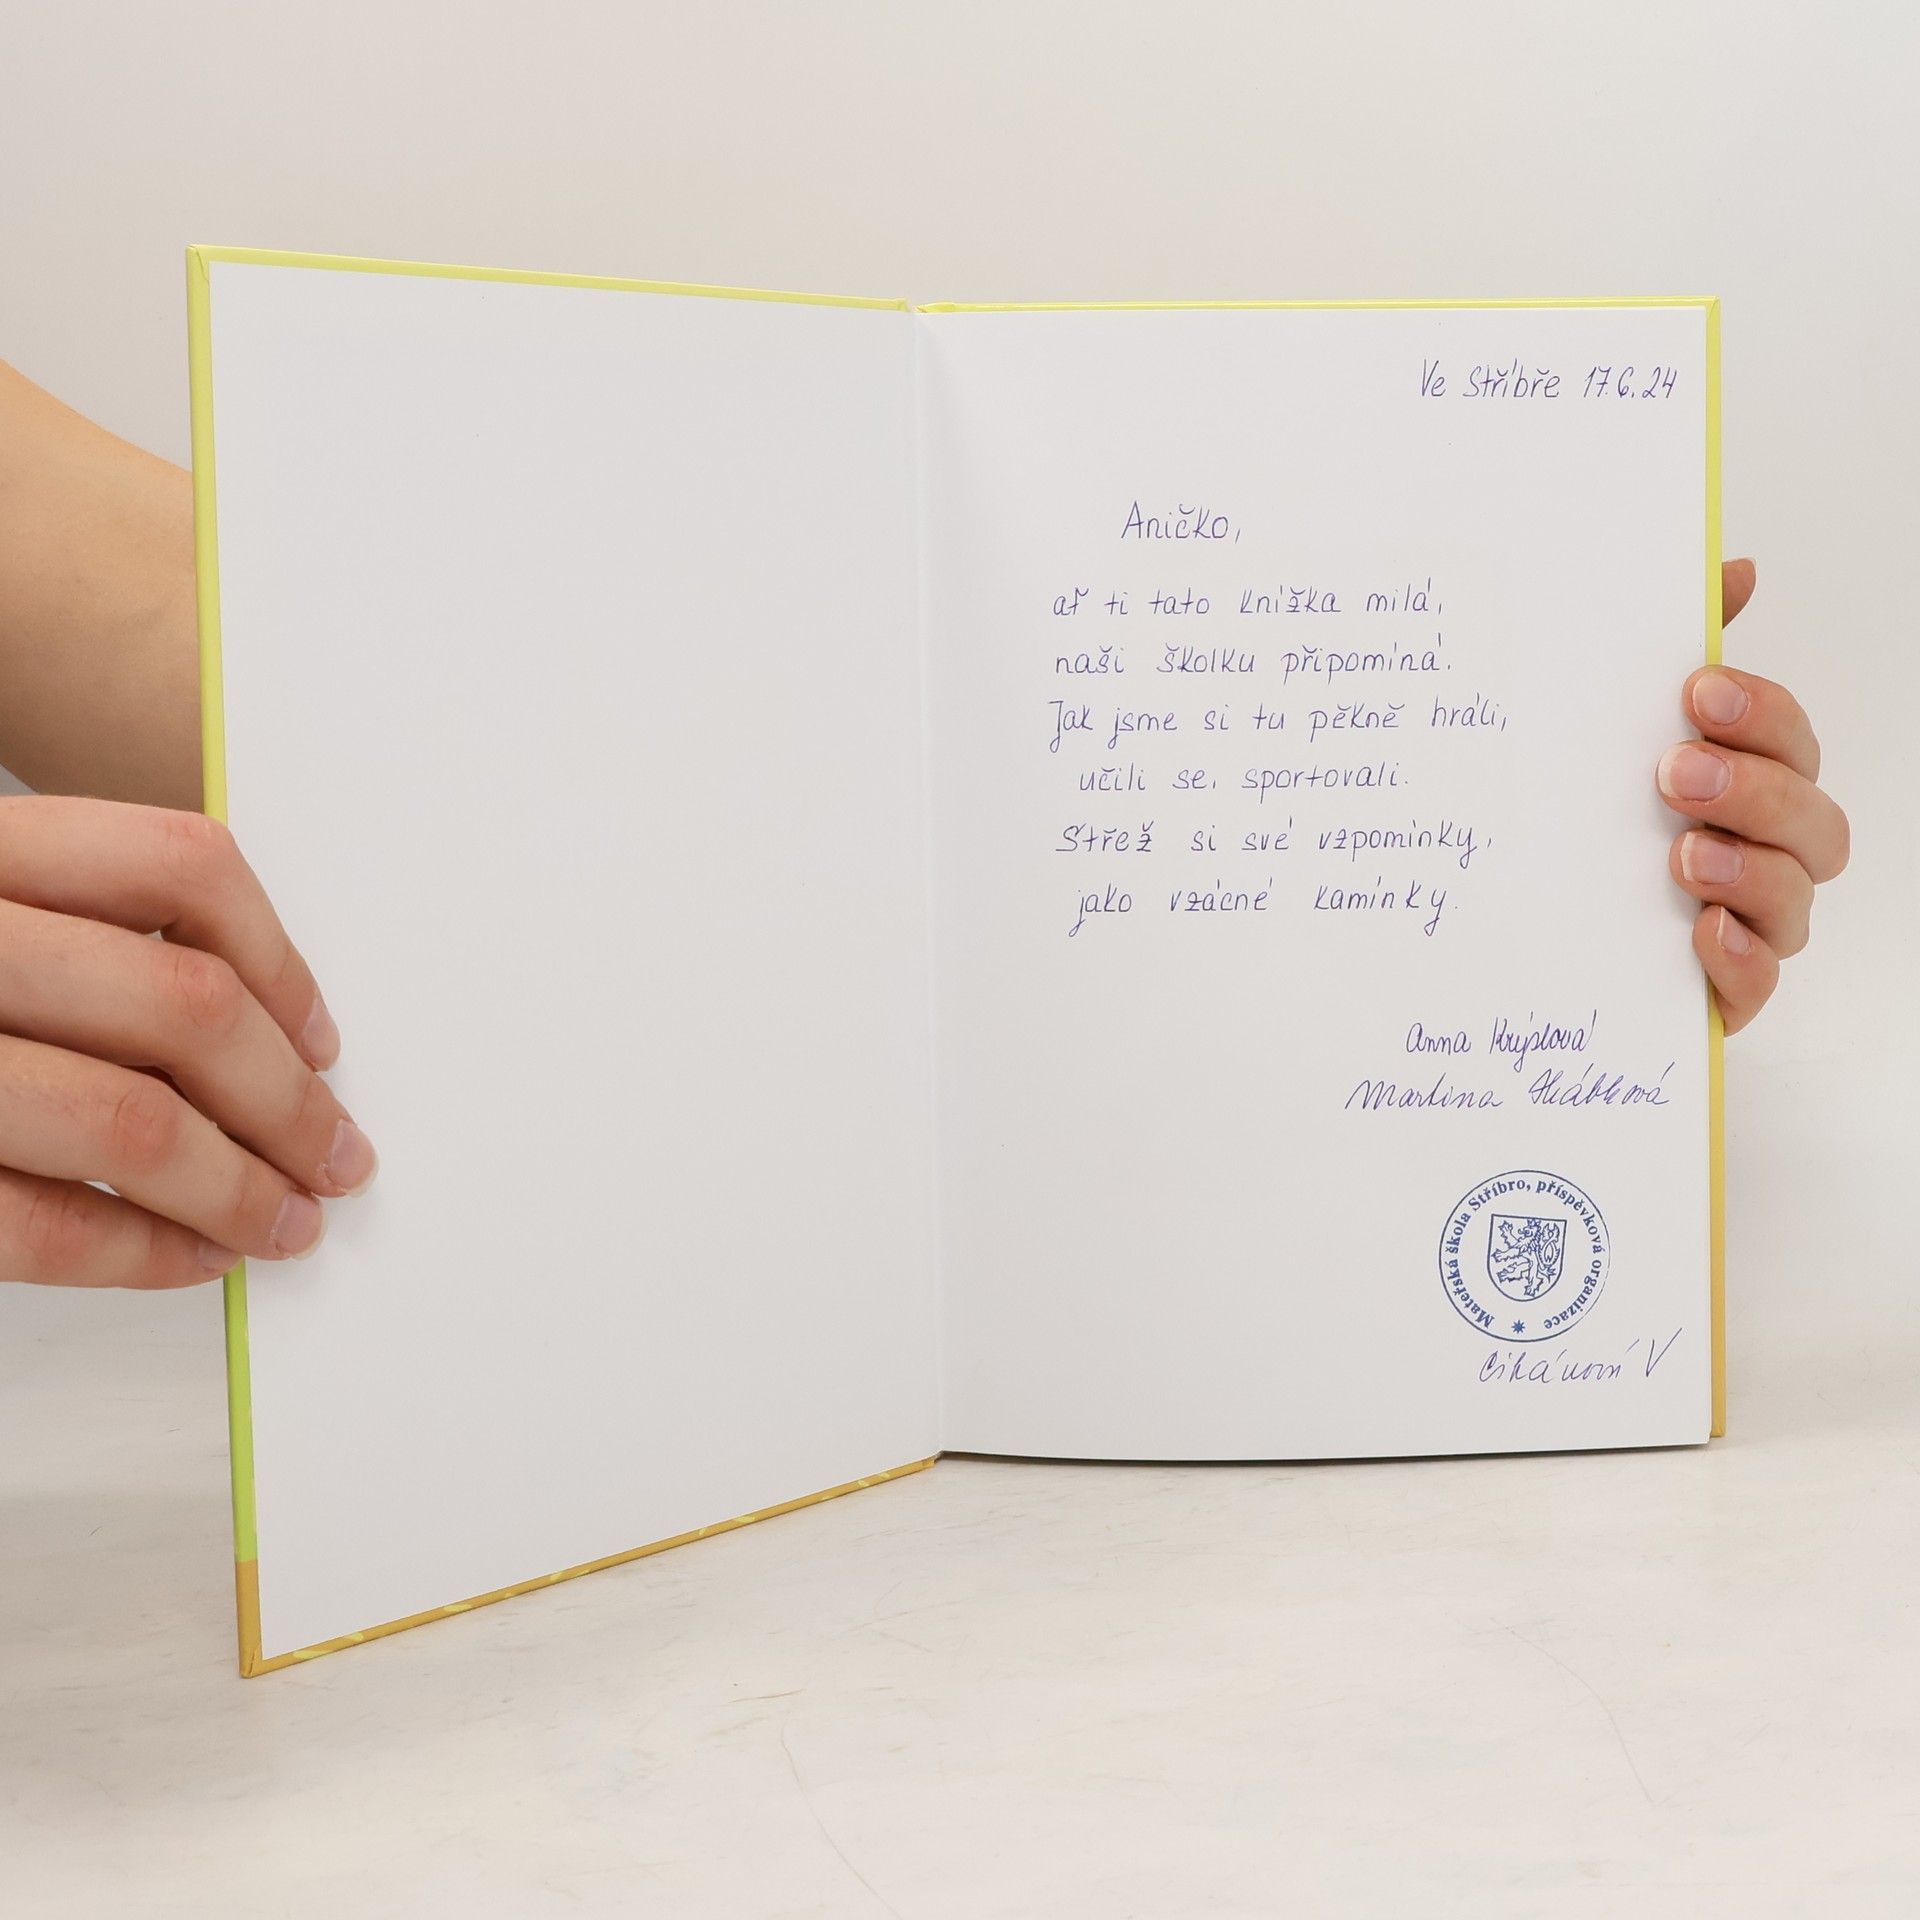 Ve Stříbře 17.6.24
Aničko,
ať ti tato knížka milá,
naši školku připomíná.
Jak jsme si tu pěkně hráli,
učili se, sportovali.
Střež si své vzpomínky,
jako vzácné kamínky.
Anna Krýslová
Martina
Mateřská škola Stříbro, příspěvková organizace
V